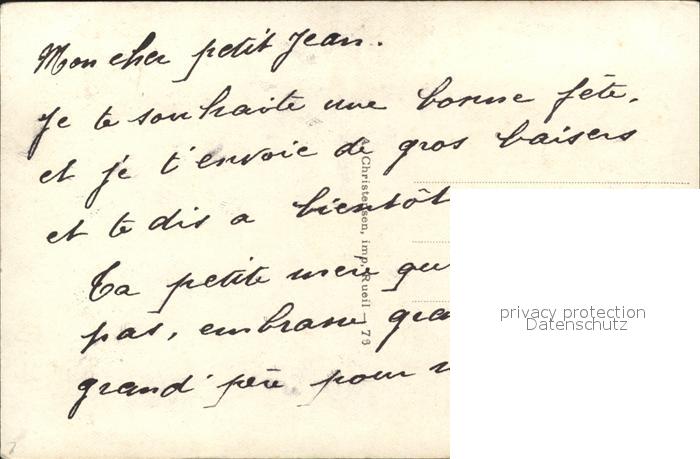 Mon cher petit Jean.
Je te souhaite une bonne fête,
et je t'envoie de gros baisers
et te dis a bientôt
Ta petite mere qu
pas, embrasse gra
grand' père pour
Christensen, imp. Rueil - 78
privacy protection
Datenschutz